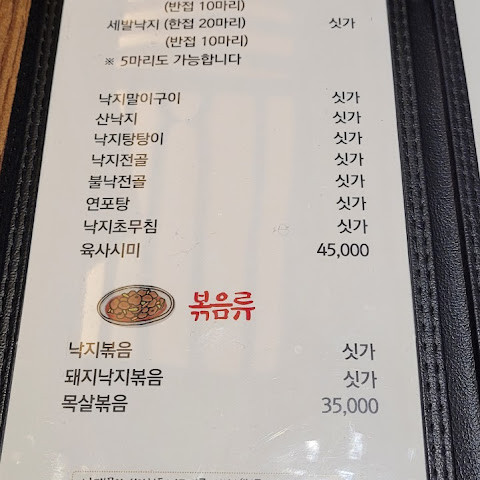 (반접 10마리)
세발낙지 (한접 20마리) 싯가
(반접 10마리)
※ 5마리도 가능합니다
낙지말이구이 싯가
산낙지 싯가
낙지탕탕이 싯가
낙지전골 싯가
불낙전골 싯가
연포탕 싯가
낙지초무침 싯가
육사시미 45,000
볶음류
낙지볶음 싯가
돼지낙지볶음 싯가
목살볶음 35,000